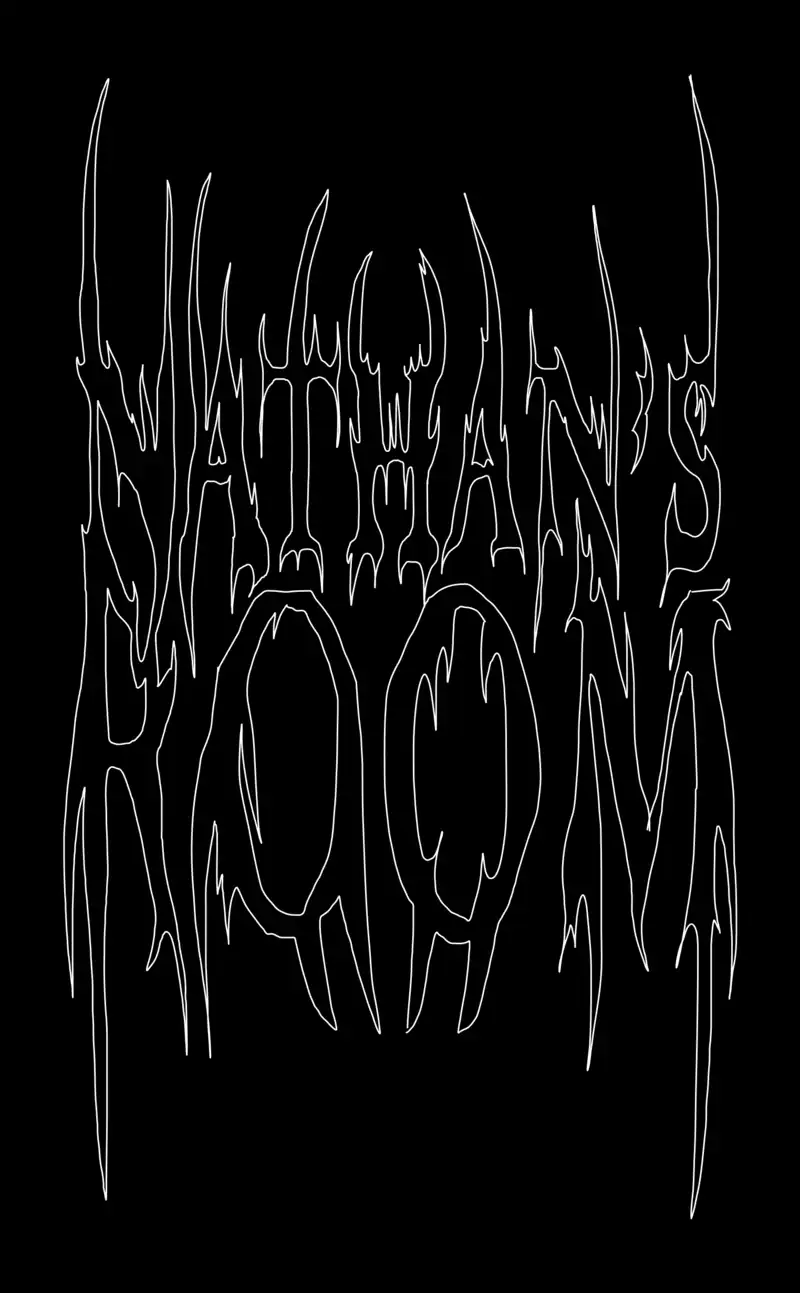 NATHAN'S
ROOM